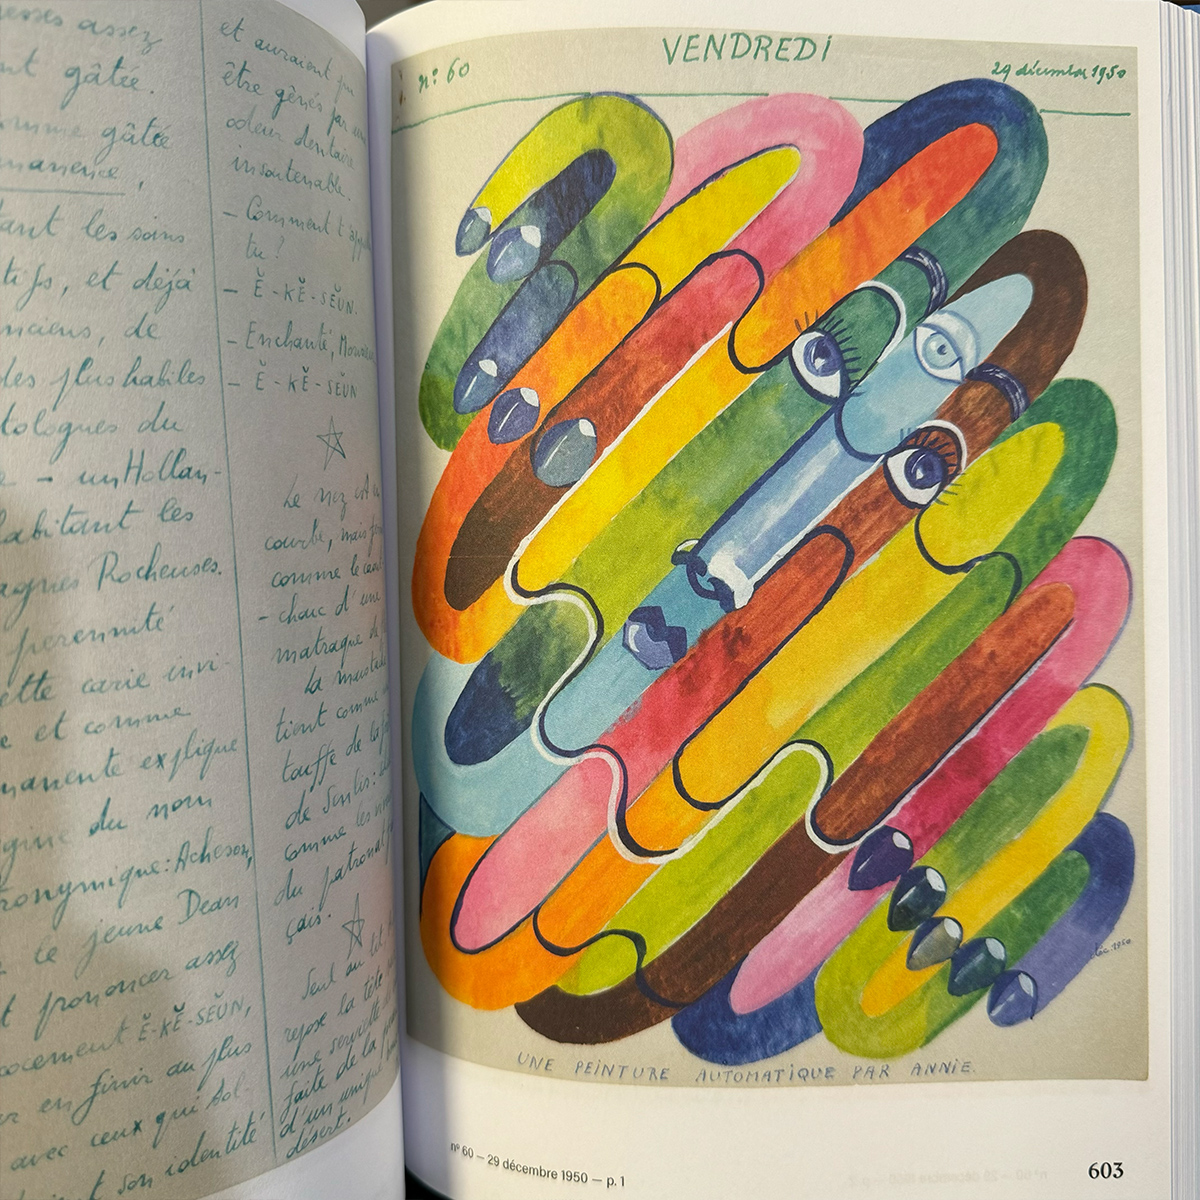 nt gâtée.
comme gâtée
manence,
tant les soins
tifs, et déjà
nciens, de
des plus habiles
tologues du
e - un Hollan-
habitant les
agnes Rocheuses.
pérennité
ette carie invi-
e et comme
manente explique
gine du nom
ronymique: Acheson,
ce jeune Dean
t prononcer assez
ocement Ĕ-KĔ-SĔUN,
er en finir au plus
avec ceux qui sol-
son identité
et auraient pu
être gênés par une
odeur dentaire
insoutenable.
- Comment t'appel
tu?
- Ĕ-KĔ-SĔUN.
- Enchanté, Monsieur
- Ĕ-KĔ-SĔUN
Le nez est
courbe, mais
comme le caout
- chouc d'une
matraque de
La moustache
tient comme
touffe de la
de Senlis:
comme les
du patronat
çais.
Seul au lit
repose la tête
une serviette
faite de la
d'un unique
désert.
nº 60
VENDREDI
29 décembre 1950
déc. 1950
UNE PEINTURE AUTOMATIQUE PAR ANNIE.
nº 60 – 29 décembre 1950 – p. 1
603